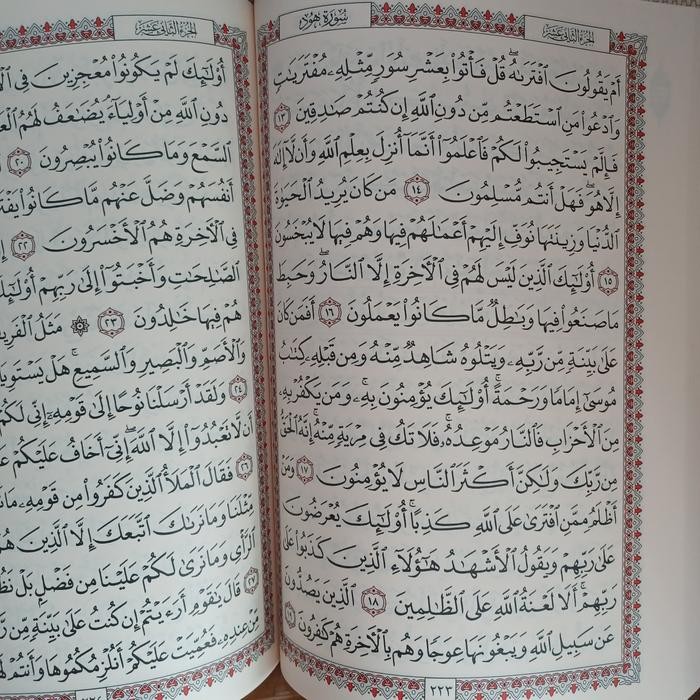 الجُزءُ الثَّانِي عَشَرَ
سُورَةُ هُودٍ
أَمْ يَقُولُونَ ٱفْتَرَىٰهُ ۖ قُلْ فَأْتُوا۟ بِعَشْرِ سُوَرٍ مِّثْلِهِۦ مُفْتَرَيَٰتٍ
وَٱدْعُوا۟ مَنِ ٱسْتَطَعْتُم مِّن دُونِ ٱللَّهِ إِن كُنتُمْ صَٰدِقِينَ ١٣
فَإِلَّمْ يَسْتَجِيبُوا۟ لَكُمْ فَٱعْلَمُوٓا۟ أَنَّمَآ أُنزِلَ بِعِلْمِ ٱللَّهِ وَأَن لَّآ إِلَٰهَ
إِلَّا هُوَ ۖ فَهَلْ أَنتُم مُّسْلِمُونَ ١٤ مَن كَانَ يُرِيدُ ٱلْحَيَوٰةَ
ٱلدُّنْيَا وَزِينَتَهَا نُوَفِّ إِلَيْهِمْ أَعْمَٰلَهُمْ فِيهَا وَهُمْ فِيهَا لَا يُبْخَسُونَ
١٥ أُو۟لَٰٓئِكَ ٱلَّذِينَ لَيْسَ لَهُمْ فِى ٱلْءَاخِرَةِ إِلَّا ٱلنَّارُ ۖ وَحَبِطَ
مَا صَنَعُوا۟ فِيهَا وَبَٰطِلٌ مَّا كَانُوا۟ يَعْمَلُونَ ١٦ أَفَمَن كَانَ
عَلَىٰ بَيِّنَةٍ مِّن رَّبِّهِۦ وَيَتْلُوهُ شَاهِدٌ مِّنْهُ وَمِن قَبْلِهِۦ كِتَٰبُ
مُوسَىٰٓ إِمَامًا وَرَحْمَةً ۚ أُو۟لَٰٓئِكَ يُؤْمِنُونَ بِهِۦ ۚ وَمَن يَكْفُرْ بِهِۦ
مِنَ ٱلْأَحْزَابِ فَٱلنَّارُ مَوْعِدُهُۥ ۚ فَلَا تَكُ فِى مِرْيَةٍ مِّنْهُ ۚ إِنَّهُ ٱلْحَقُّ
مِن رَّبِّكَ وَلَٰكِنَّ أَكْثَرَ ٱلنَّاسِ لَا يُؤْمِنُونَ ١٧ وَمَنْ
أَظْلَمُ مِمَّنِ ٱفْتَرَىٰ عَلَى ٱللَّهِ كَذِبًا ۚ أُو۟لَٰٓئِكَ يُعْرَضُونَ
عَلَىٰ رَبِّهِمْ وَيَقُولُ ٱلْأَشْهَٰدُ هَٰٓؤُلَآءِ ٱلَّذِينَ كَذَبُوا۟ عَلَىٰ
رَبِّهِمْ ۚ أَلَا لَعْنَةُ ٱللَّهِ عَلَى ٱلظَّٰلِمِينَ ١٨ ٱلَّذِينَ يَصُدُّونَ
عَن سَبِيلِ ٱللَّهِ وَيَبْغُونَهَا عِوَجًا وَهُم بِٱلْءَاخِرَةِ هُمْ كَٰفِرُونَ ١٩
٢٢٣
الجُزءُ الثَّانِي عَشَرَ
أُو۟لَٰٓئِكَ لَمْ يَكُونُوا۟ مُعْجِزِينَ فِى
دُونِ ٱللَّهِ مِنْ أَوْلِيَآءَ ۘ يُضَٰعَفُ لَهُمُ
ٱلسَّمْعَ وَمَا كَانُوا۟ يُبْصِرُونَ ٢٠
أَنفُسَهُمْ وَضَلَّ عَنْهُم مَّا كَانُوا۟
فِى ٱلْءَاخِرَةِ هُمُ ٱلْأَخْسَرُونَ ٢٢
ٱلصَّٰلِحَٰتِ وَأَخْبَتُوٓا۟ إِلَىٰ رَبِّهِمْ
هُمْ فِيهَا خَٰلِدُونَ ٢٣ ۞ مَثَلُ
وَٱلْأَصَمِّ وَٱلْبَصِيرِ وَٱلسَّمِيعِ ۚ هَلْ
٢٤ وَلَقَدْ أَرْسَلْنَا نُوحًا إِلَىٰ قَوْمِهِۦٓ إِنِّى لَكُمْ
أَن لَّا تَعْبُدُوٓا۟ إِلَّا ٱللَّهَ ۖ إِنِّىٓ أَخَافُ عَلَيْكُمْ
٢٦ فَقَالَ ٱلْمَلَأُ ٱلَّذِينَ كَفَرُوا۟ مِن قَوْمِهِۦ
مِّثْلَنَا وَمَا نَرَىٰكَ ٱتَّبَعَكَ إِلَّا ٱلَّذِينَ
ٱلرَّأْىِ وَمَا نَرَىٰ لَكُمْ عَلَيْنَا مِن فَضْلٍۭ بَلْ
٢٧ قَالَ يَٰقَوْمِ أَرَءَيْتُمْ إِن كُنتُ عَلَىٰ بَيِّنَةٍ مِّن
مِّنْ عِندِهِۦ فَعُمِّيَتْ عَلَيْكُمْ أَنُلْزِمُكُمُوهَا وَأَنتُمْ